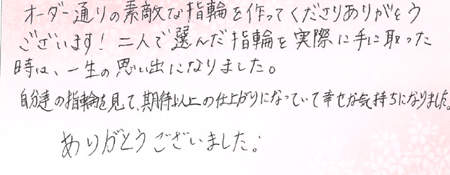 オーダー通りの素敵な指輪を作ってくださりありがとう
ございます！二人で選んだ指輪を実際に手に取った
時は、一生の思い出になりました。
自分達の指輪を見て、期待以上の仕上がりになっていて幸せな気持ちになりました。
ありがとうございました。